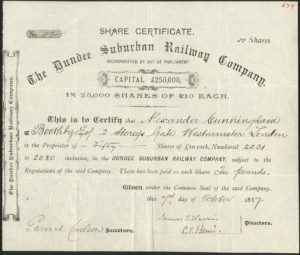 SHARE CERTIFICATE.
50 Shares
The Dundee Suburban Railway Company,
INCORPORATED BY ACT OF PARLIAMENT
CAPITAL £250,000,
IN 25,000 SHARES OF £10 EACH.
This is to Certify that Alexander Cunningham
of 2 Storeys Gate Westminster London
is the Proprietor of Fifty Shares of £10 each, Numbered 2031
to 2080 inclusive, in the DUNDEE SUBURBAN RAILWAY COMPANY, subject to the
Regulations of the said Company. There has been paid on each Share ten pounds.
Given under the Common Seal of the said Company,
this 7th day of October 1887.
Secretary.
Directors.
The Dundee Suburban Railway Company.